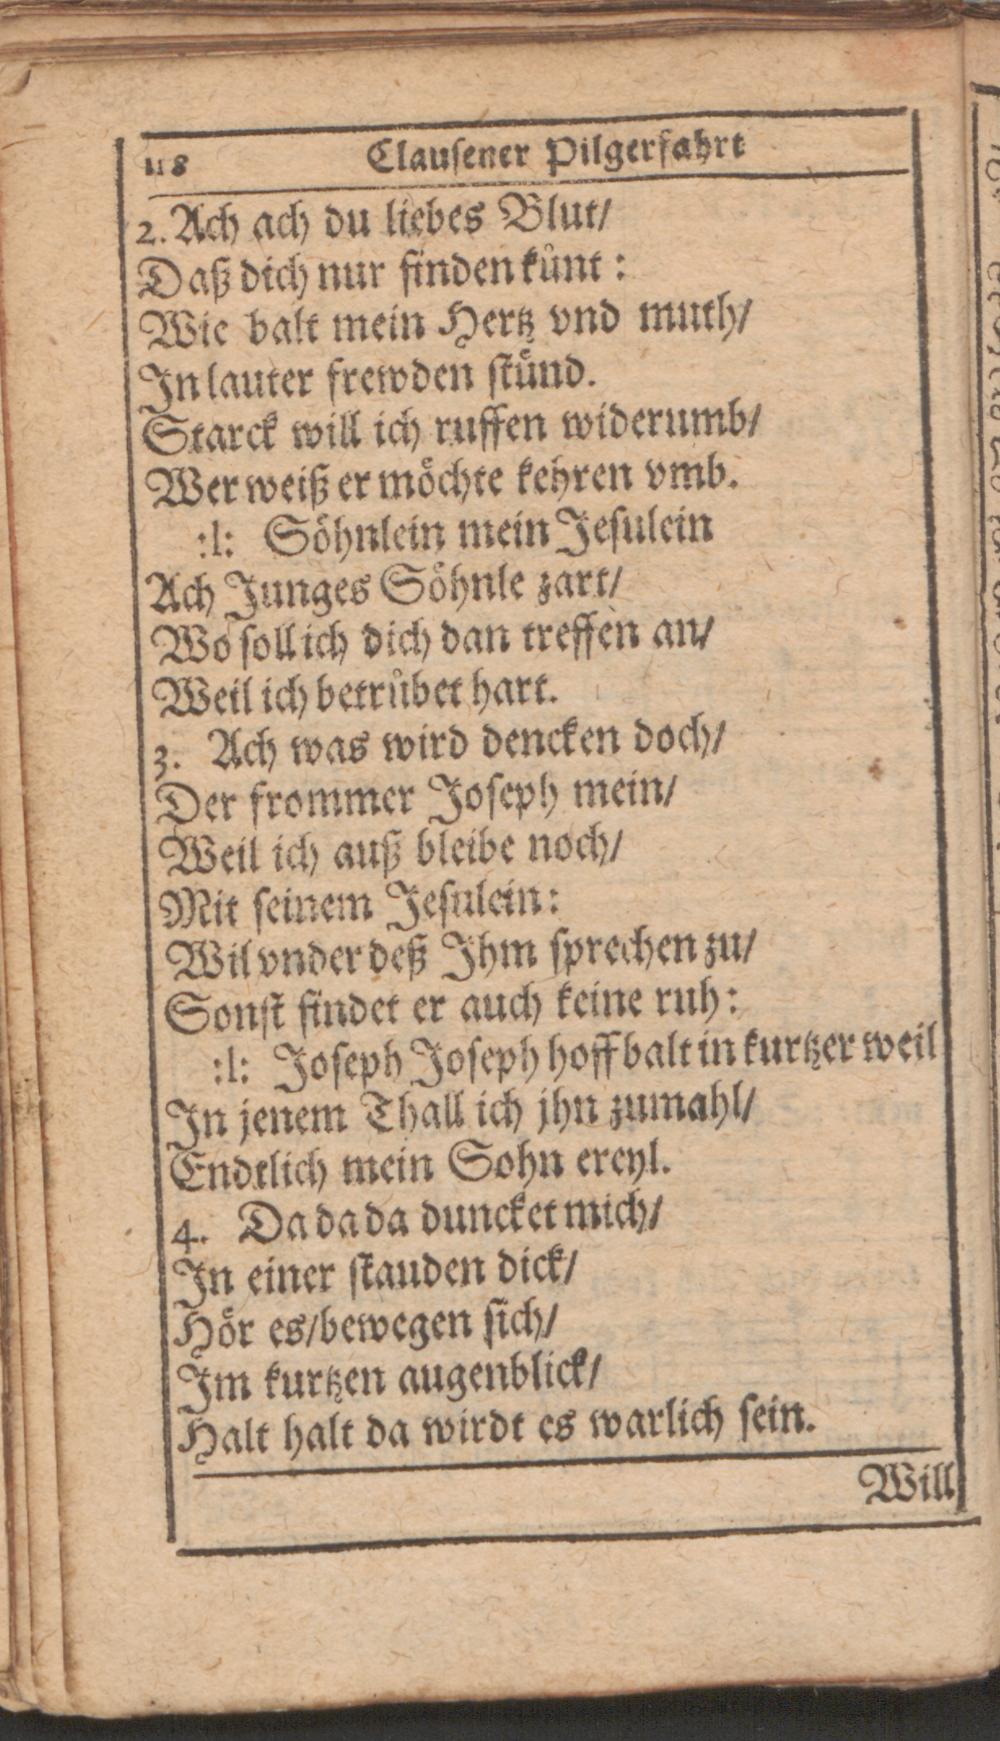 118 Clausener Pilgerfahrt
2. Ach ach du liebes Blut/
Daß dich nur finden künt:
Wie balt mein Hertz vnd muth/
In lauter frewden stünd.
Starck will ich ruffen widerumb/
Wer weiß er möchte kehren vmb.
:l: Söhnlein mein Jesulein
Ach Junges Söhnle zart/
Wo soll ich dich dan treffen an/
Weil ich betrübet hart.
3. Ach was wird dencken doch/
Der frommer Joseph mein/
Weil ich auß bleibe noch/
Mit seinem Jesulein:
Wil vnder deß Ihm sprechen zu/
Sonst findet er auch keine ruh:
:l: Joseph Joseph hoff balt in kurtzer weil
In jenem Thall ich jhn zumahl/
Endtlich mein Sohn ereyl.
4. Da da da duncket mich/
In einer stauden dick/
Hör es/bewegen sich/
Im kurtzen augenblick/
Halt halt da wirdt es warlich sein.
Will